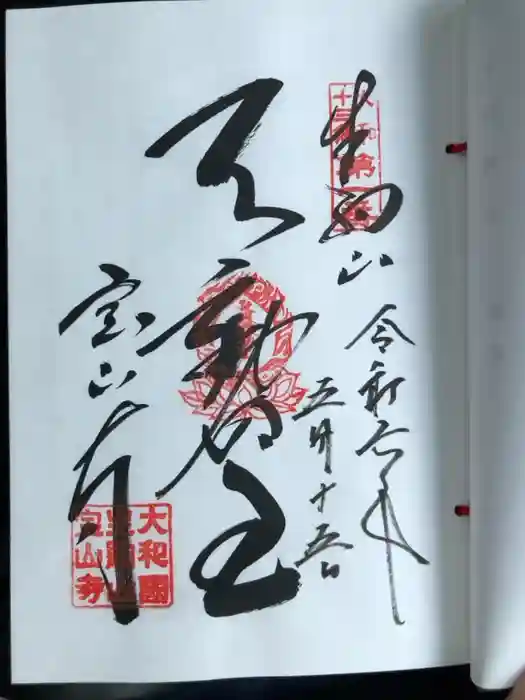 大和十三仏第一番
生駒山
令和六年
五月十五日
不動明王
宝山寺
大和國
生駒山
宝山寺